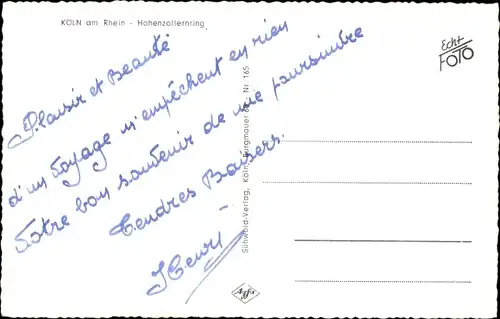 KÖLN am Rhein - Hohenzollernring
Echt
FOTO
Plaisir et Beauté
d'un Voyage n'empêchent en rien
Votre bon souvenir de me poursuivre
Tendres Baisers.
Henri
Sühwold-Verlag, Köln, Burgmauer Nr. 165
Agfa